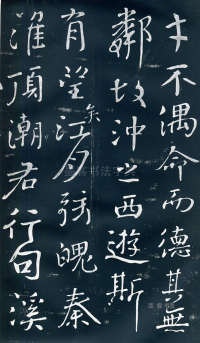 才不偶命而德其無
鄰故沖之西遊斯
有望矣江夕弦魄秦
淮頂潮君行句溪